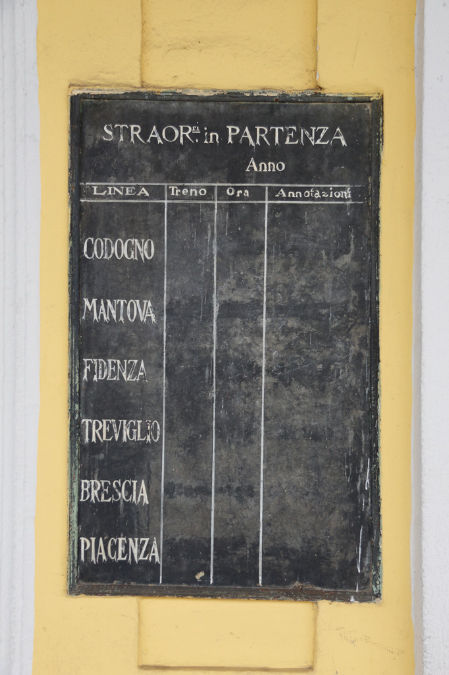 STRAOR.ri in PARTENZA
Anno
LINEA Treno Ora Annotazioni
CODOGNO
MANTOVA
FIDENZA
TREVIGLIO
BRESCIA
PIACENZA